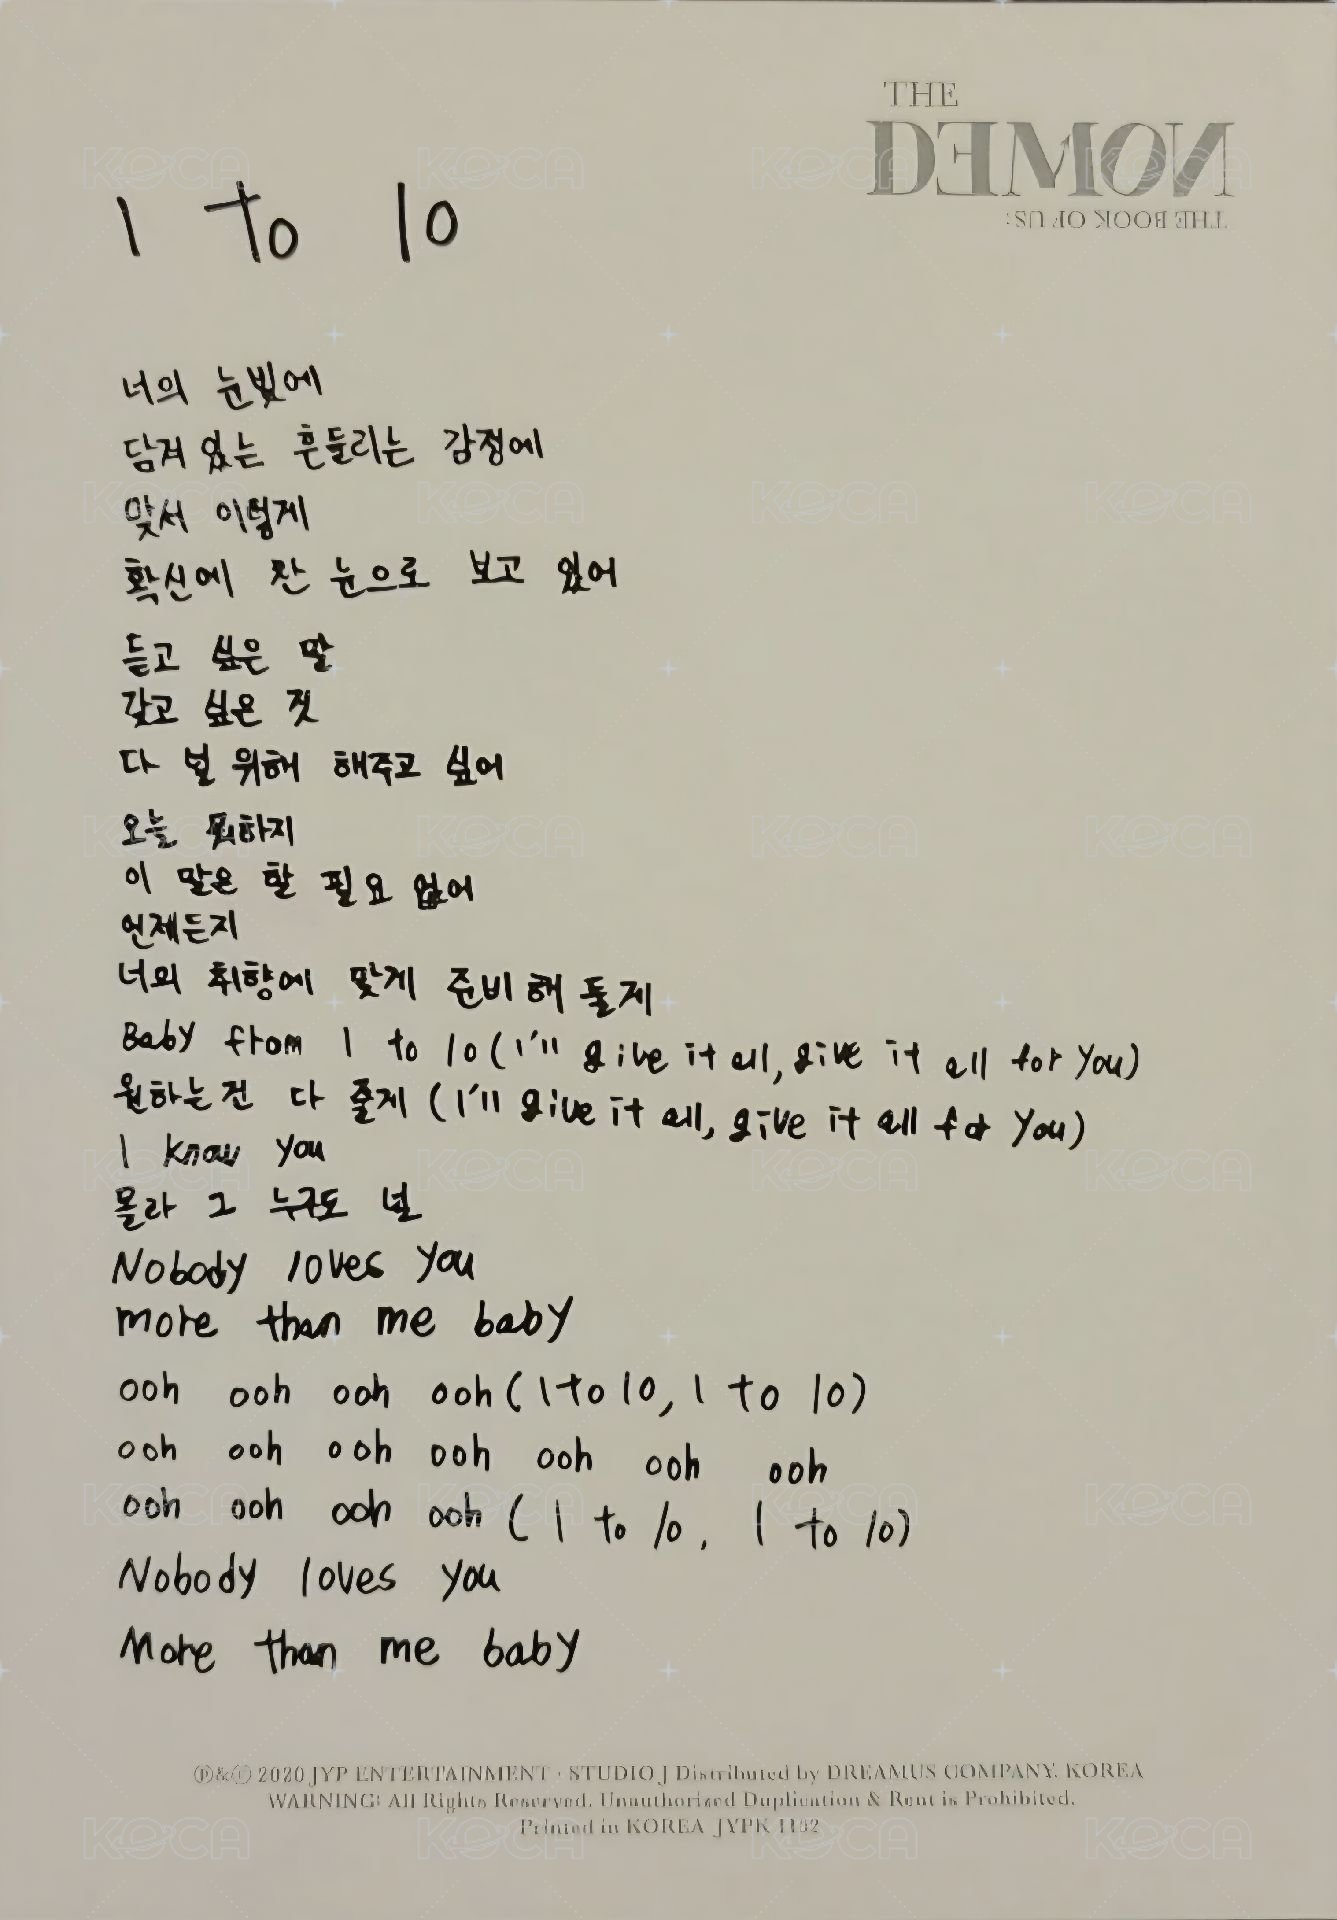 THE
DEMON
THE BOOK OF US:
1 to 10
너의 눈빛에
담겨 있는 흔들리는 감정에
맞서 이렇게
확신에 찬 눈으로 보고 있어
듣고 싶은 말
갖고 싶은 것
다 널 위해 해주고 싶어
오늘 뭐하지
이 말은 할 필요 없어
언제든지
너의 취향에 맞게 준비해 둘게
Baby from 1 to 10 (I'll give it all, give it all for you)
원하는건 다 줄게 (I'll give it all, give it all for you)
I know you
몰라 그 누구도 널
Nobody loves you
more than me baby
ooh ooh ooh ooh (1 to 10, 1 to 10)
ooh ooh ooh ooh ooh ooh ooh
ooh ooh ooh ooh (1 to 10, 1 to 10)
Nobody loves you
More than me baby
Ⓟ&Ⓒ 2020 JYP ENTERTAINMENT · STUDIO J Distributed by DREAMUS COMPANY. KOREA
WARNING: All Rights Reserved. Unauthorized Duplication & Rent is Prohibited.
Printed in KOREA JYPK 1152
KOCA